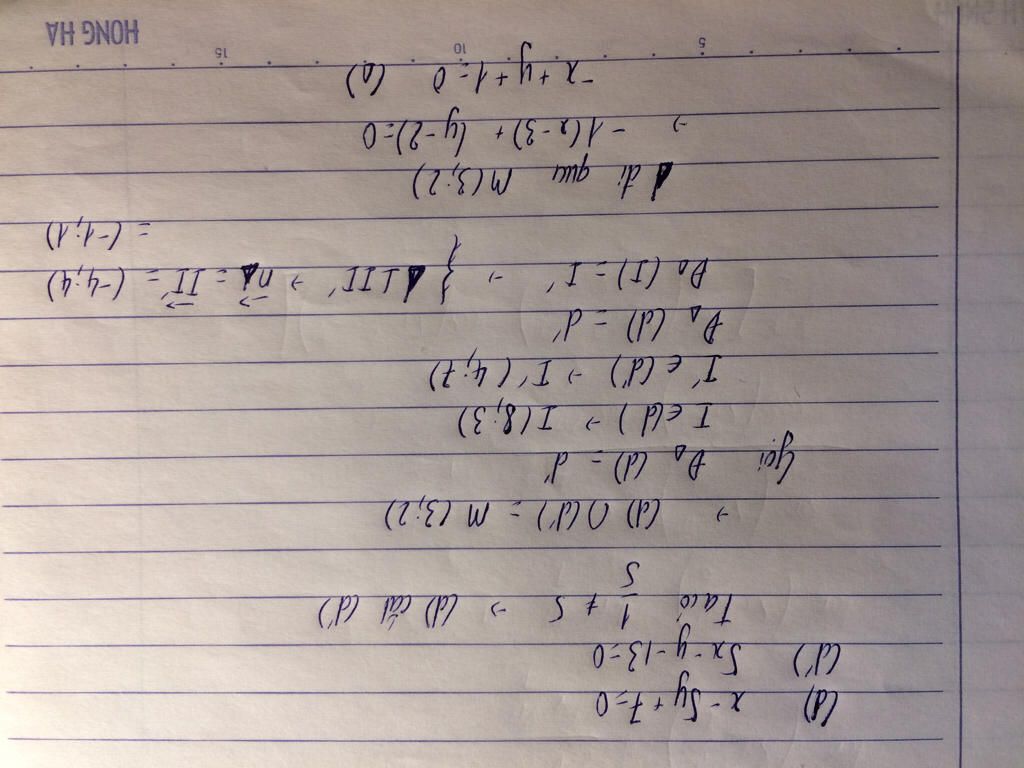 (d) x - 5y + 7 = 0
(d') 5x - y - 13 = 0
Ta có 1/5 ≠ 5 → (d) cắt (d')
→ (d) ∩ (d') = M (3; 2)
Gọi Đ∆ (d) = d'
I ∈ (d) → I (8; 3)
I' ∈ (d') → I' (4; 7)
Đ∆ (d) = d'
Đ∆ (I) = I' → } ∆ ⊥ II' → n⃗∆ = II'⃗ = (-4; 4)
= (-1; 1)
∆ đi qua M (3; 2)
→ -1(x - 3) + (y - 2) = 0
-x + y + 1 = 0 (∆)
5 10 15
HONG HA